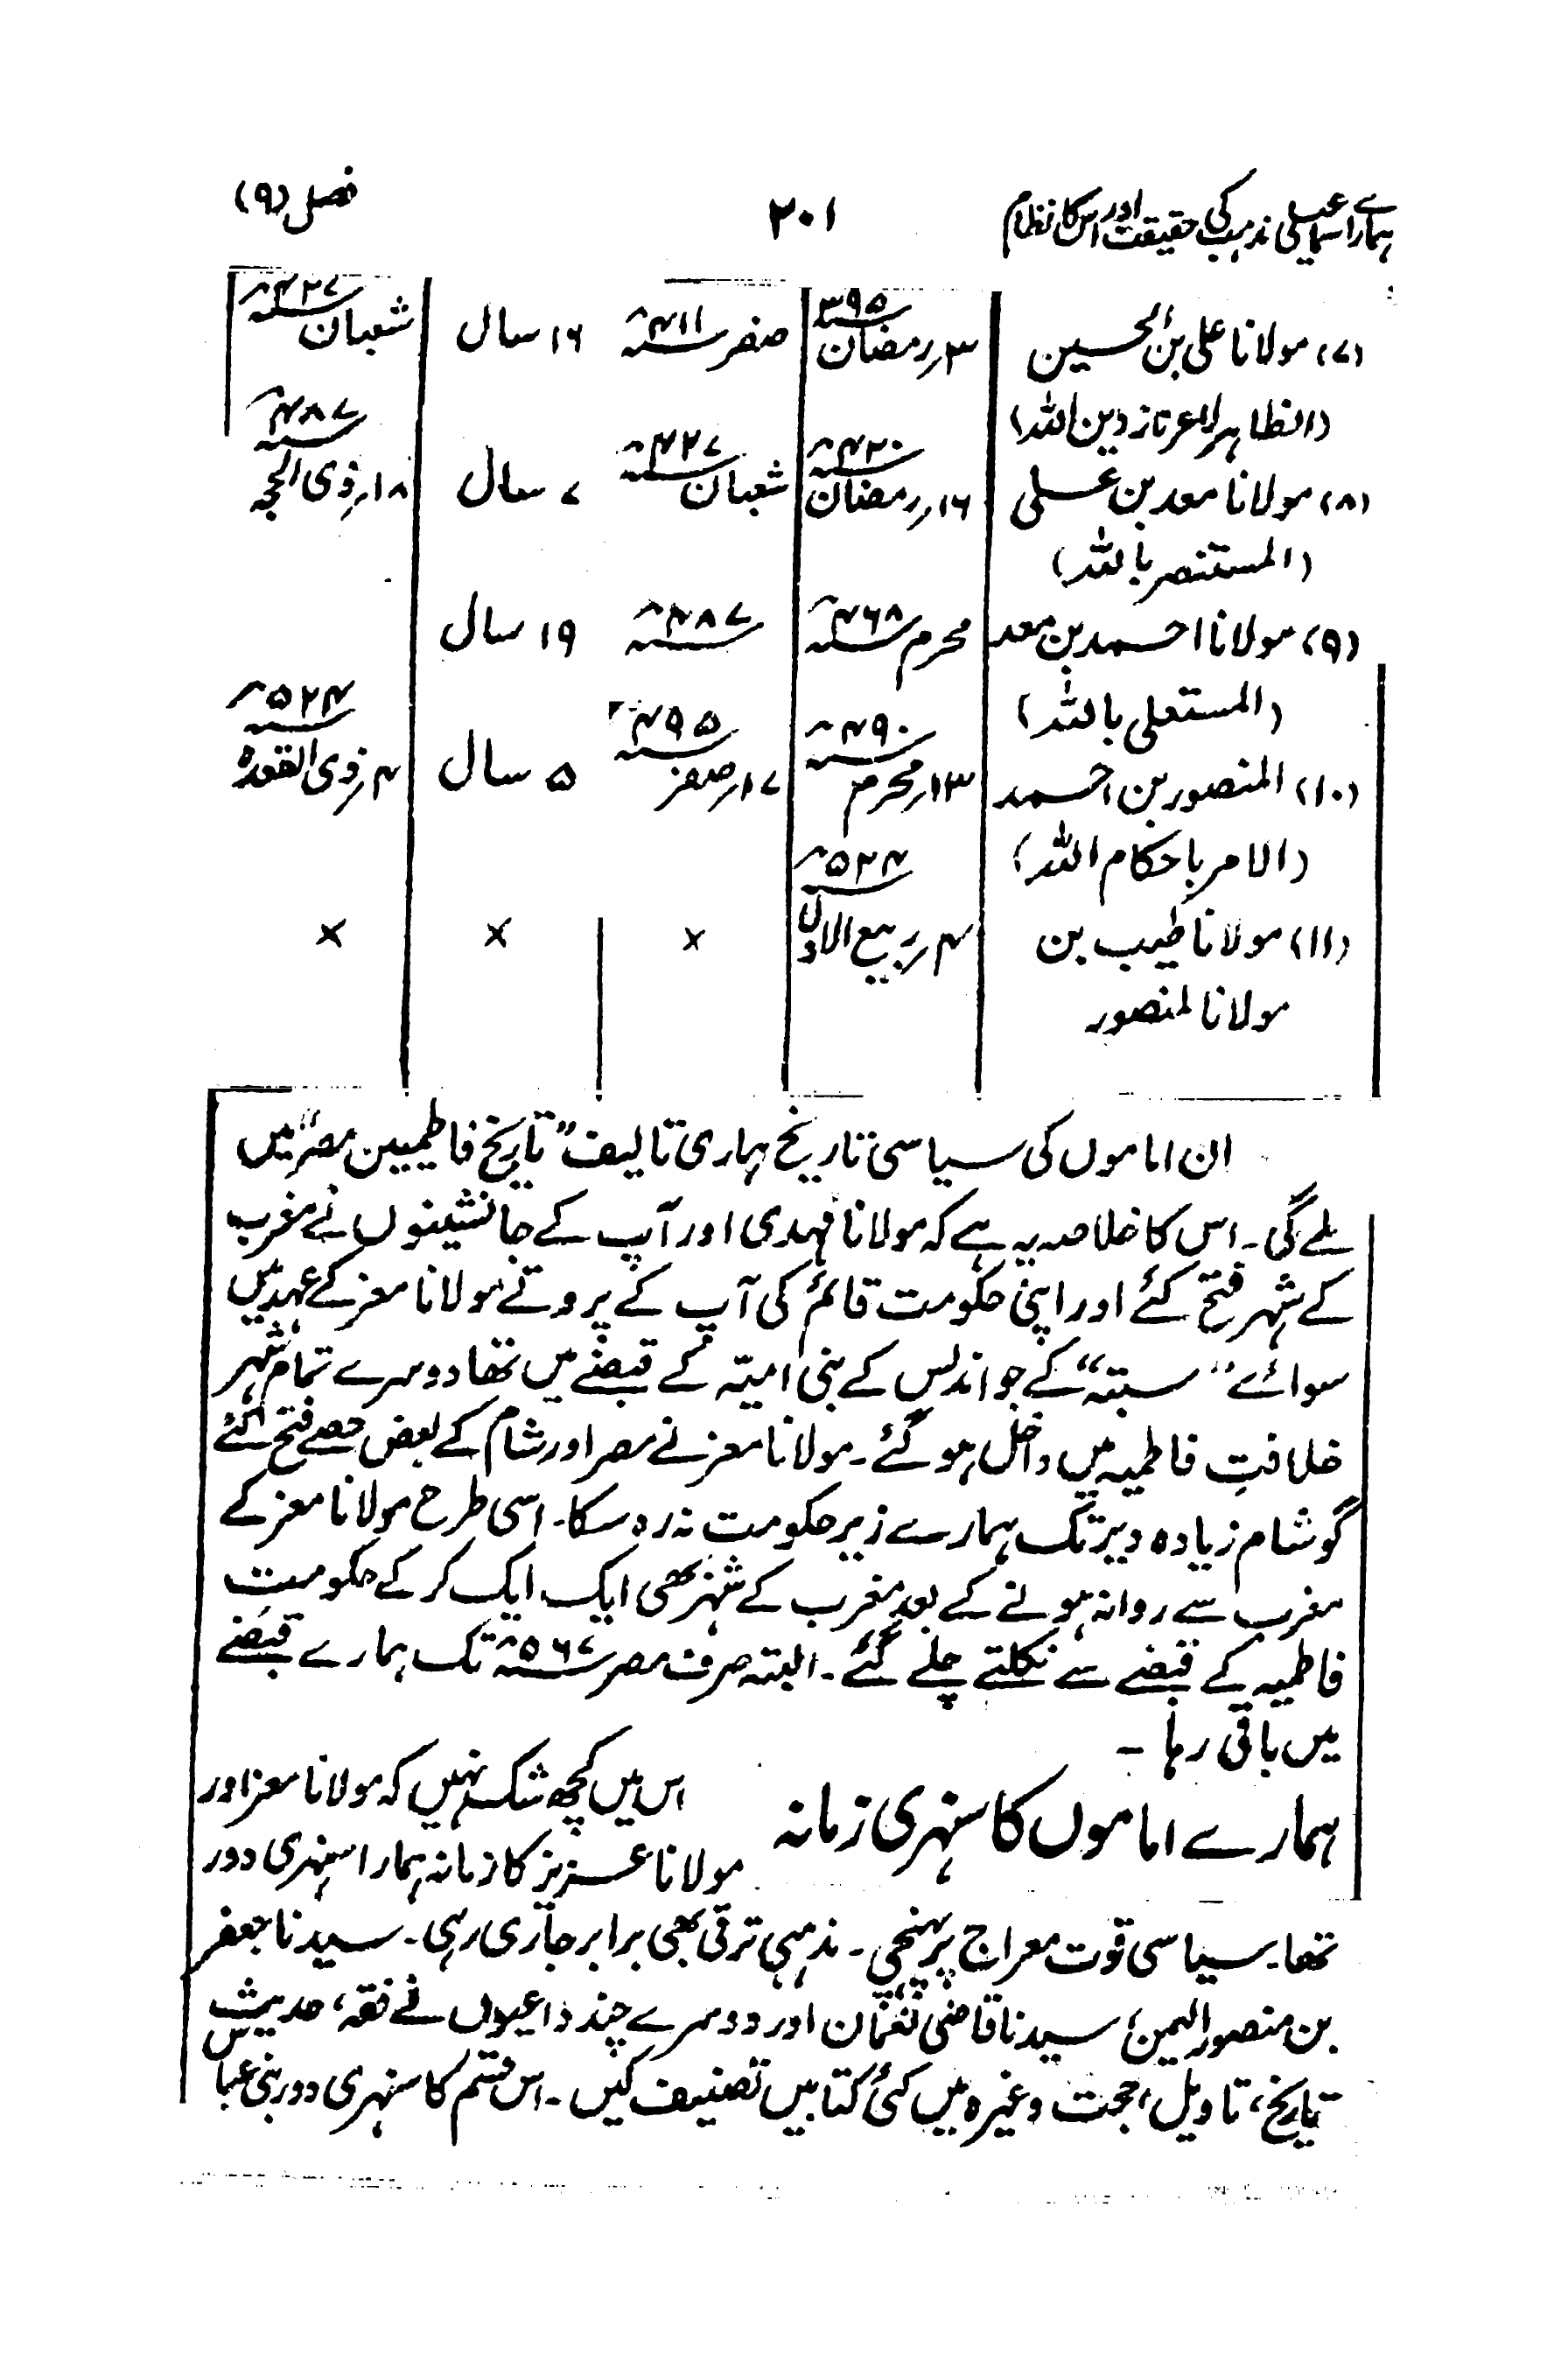 ہمارے اسماعیلی مذہب کی حقیقت اور اس کا نظام ۲۰۱ فصل (۹)
(۷) مولانا علی بن الحسین ۳؍ رمضان ۳۹۵ھ صفر ۴۱۱ھ ۱۶ سال شعبان ۴۲۷ھ
(الظاہر لاعزاز دین اللہ)
(۸) مولانا معد بن علی ۱۶؍ رمضان ۴۲۰ھ شعبان ۴۲۷ھ ۷ سال ۱۸؍ ذی الحجہ ۴۸۷ھ
(المستنصر باللہ)
(۹) مولانا احمد بن معد محرم ۴۶۸ھ ۴۸۷ھ ۱۹ سال
(المستعلی باللہ)
(۱۰) المنصور بن احمد ۱۳؍ محرم ۴۹۰ھ ۱۷؍ صفر ۴۹۵ھ ۵ سال ۴؍ ذی القعدہ ۵۲۴ھ
(الامر باحکام اللہ)
(۱۱) مولانا طیب بن ۴؍ ربیع الاول ۵۲۴ھ × × ×
مولانا لمنصور
ان اماموں کی سیاسی تاریخ ہماری تالیف "تاریخ فاطمیین مصر" میں
ملے گی۔ اس کا خلاصہ یہ ہے کہ مولانا مہدی اور آپ کے جانشینوں نے مغرب
کے شہر فتح کئے اور اپنی حکومت قائم کی آپ کے پروتے مولانا معز کے عہد میں
سوائے "سبتہ" کے جو اندلس کے بنی امیّہ کے قبضے میں تھا دوسرے تمام شہر
خلافتِ فاطمیہ میں داخل ہو گئے۔ مولانا معز نے مصر اور شام کے بعض حصے فتح کئے
گو شام زیادہ دیر تک ہمارے زیر حکومت نہ رہ سکا۔ اسی طرح مولانا معز کے
مغرب سے روانہ ہونے کے بعد مغرب کے شہر بھی ایک ایک کر کے حکومتِ
فاطمیہ کے قبضے سے نکلتے چلے گئے۔ البتہ صرف مصر ۵۶۷ھ تک ہمارے قبضے
میں باقی رہا۔
ہمارے اماموں کا سنہری زمانہ
اس میں کچھ شک نہیں کہ مولانا معز اور
مولانا عزیز کا زمانہ ہمارا سنہری دور
تھا۔ سیاسی قوت معراج پر پہنچی۔ مذہبی ترقی بھی برابر جاری رہی۔ سیدنا جعفر
بن منصور الیمن، سیدنا قاضی نعمان اور دوسرے چند داعیوں نے فقہ، حدیث
تاریخ، تاویل، حجت وغیرہ میں کئی کتابیں تصنیف کیں۔ اس قسم کا سنہری دور بنی عباس